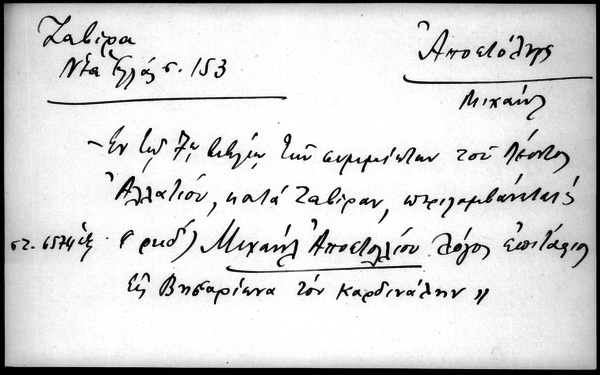 Ζαβίρα
Νέα Ἑλλάς σ. 153
Ἀποστόλης
Μιχαήλ
– Ἐν τῷ 7ῳ βιβλίῳ τῶν συμμίκτων τοῦ Λέοντος
Ἀλλατίου, κατά Ζαβίραν, περιλαμβάνεται
(ρκδ') Μιχαήλ Ἀποστολίου λόγος ἐπιτάφιος
εἰς Βησαρίωνα τόν καρδινάλην"